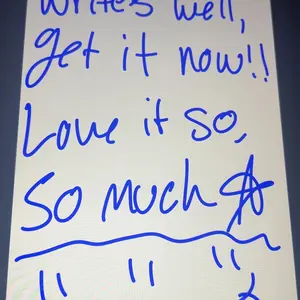 writes well,
get it now!!
Love it so,
so much ☆
" " "